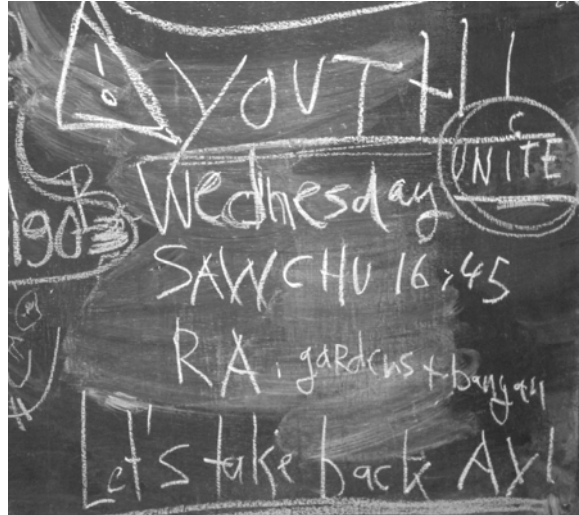 YOUTH!
UNITE
Wednesday
SAWCHU 16:45
RA. gardens + banyan
Let's take back AV!
90